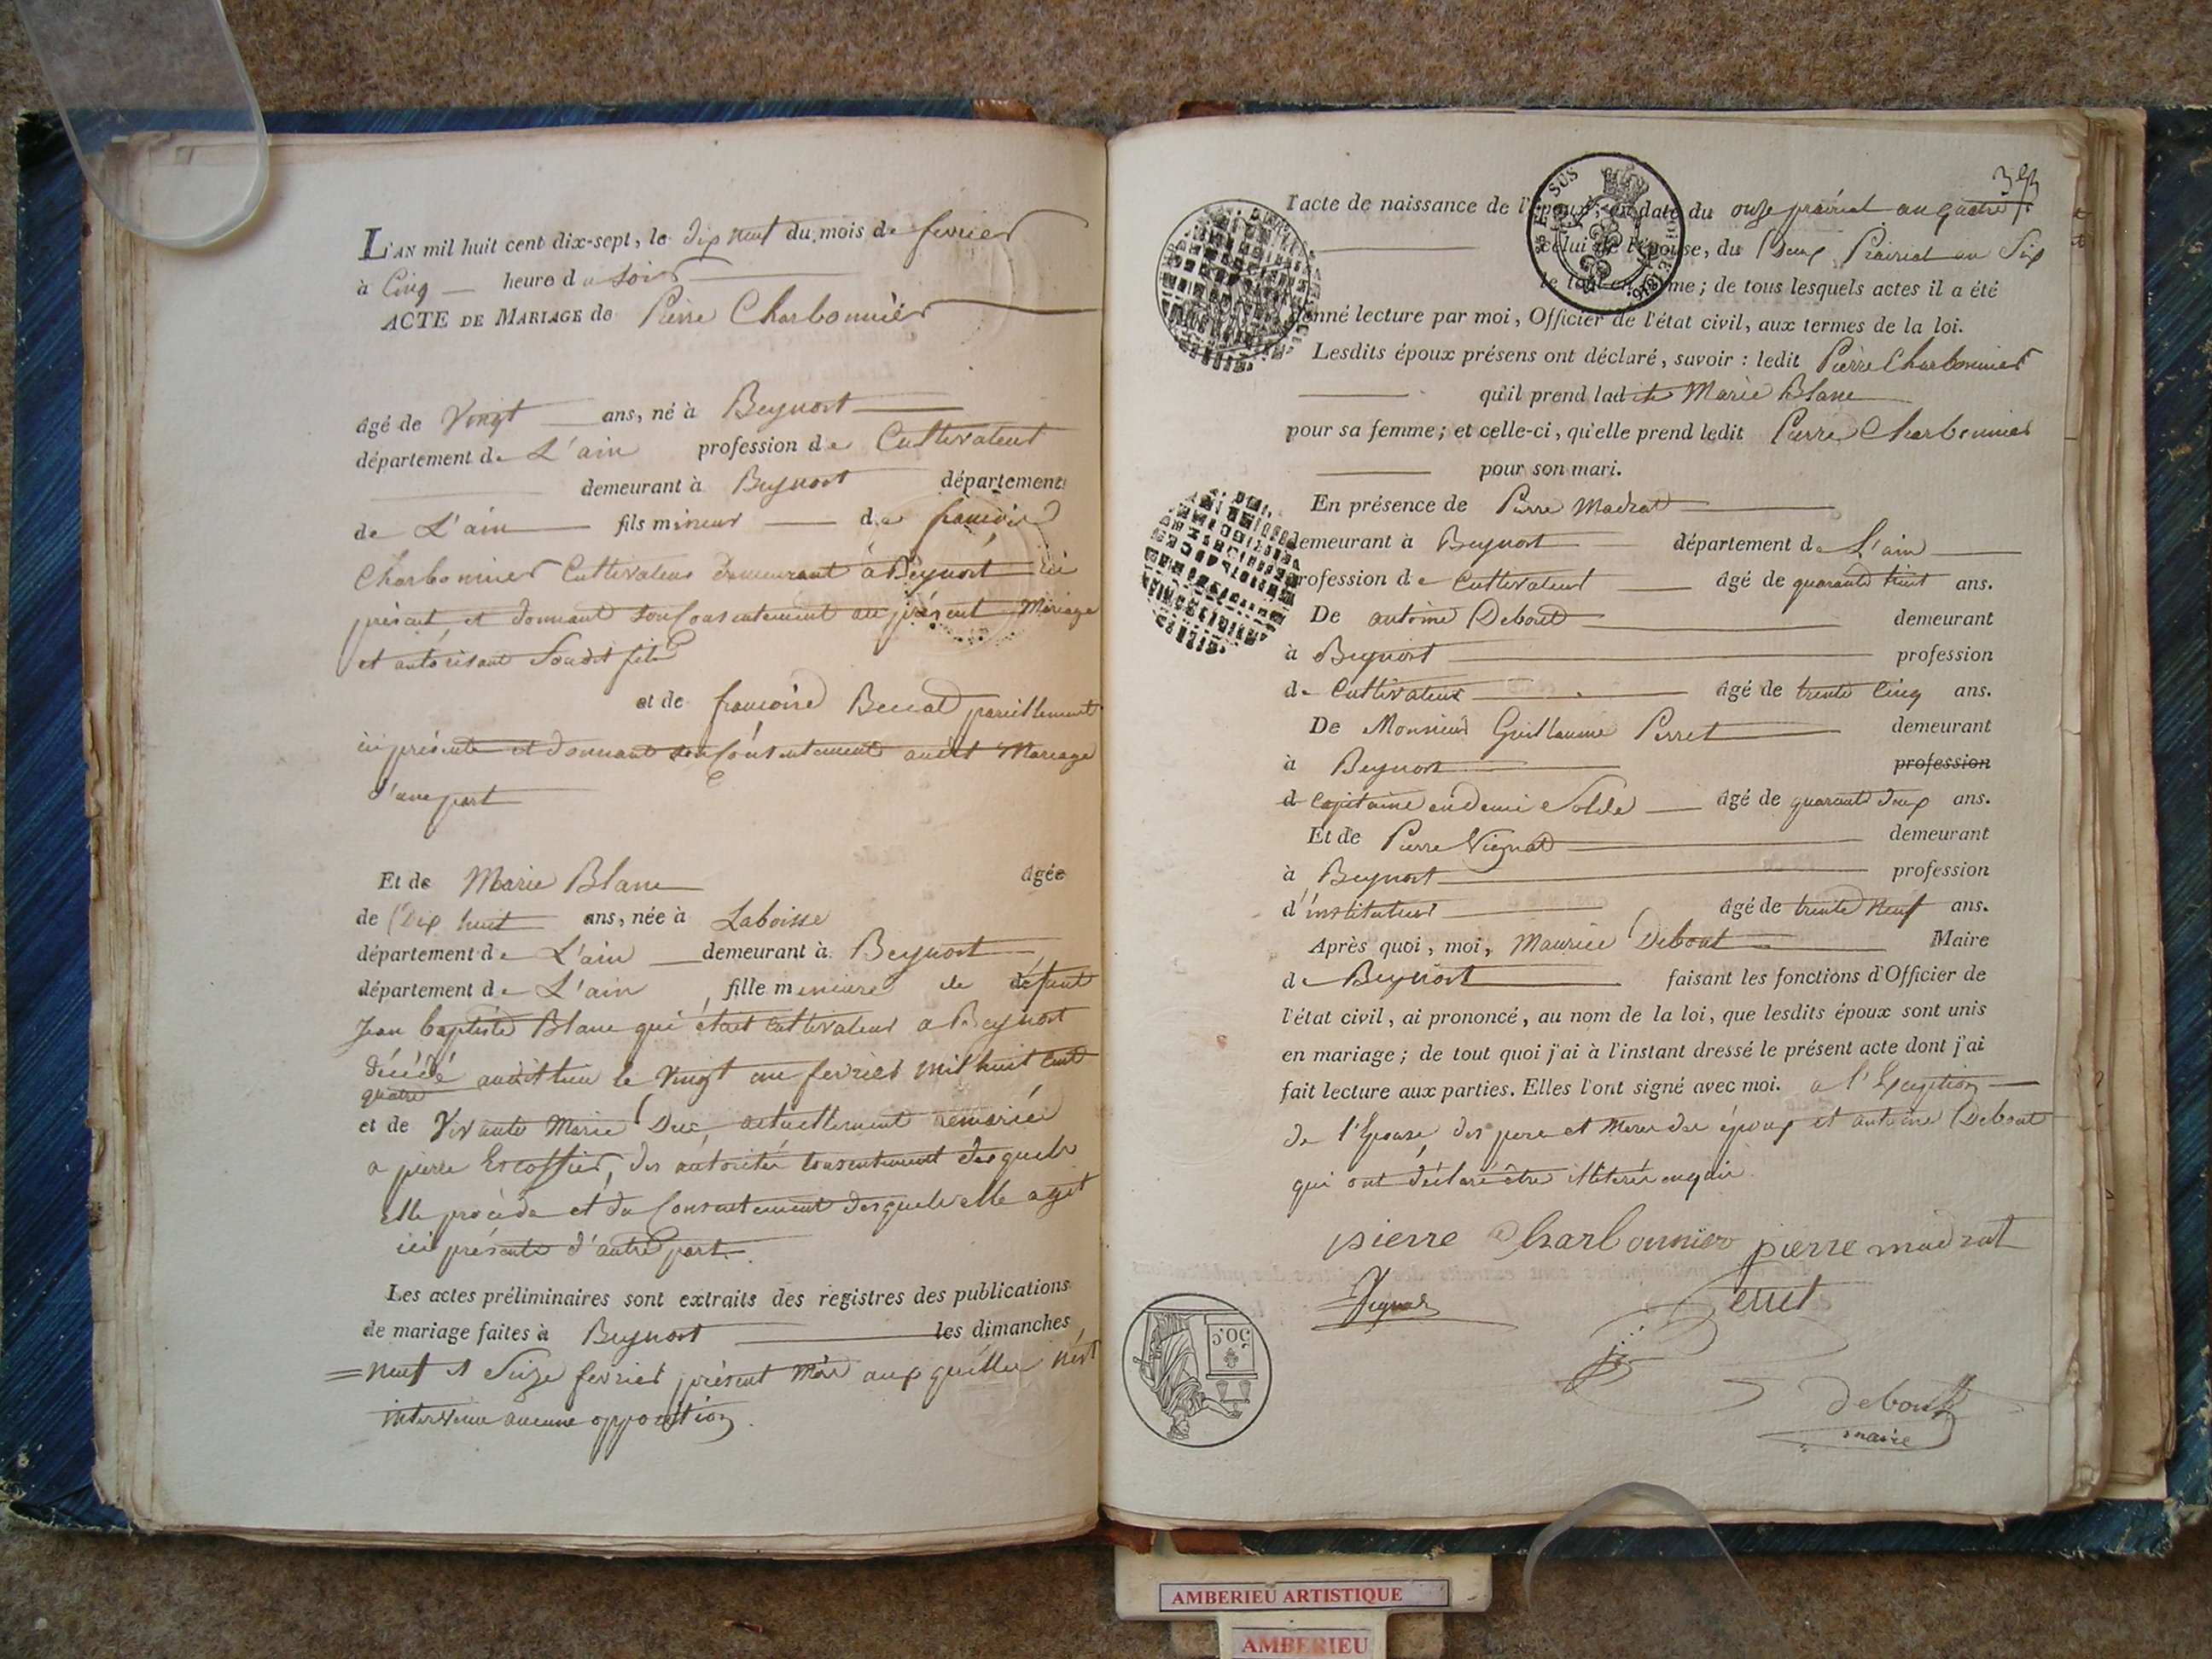 L'AN mil huit cent dix-sept, le dix neuf du mois de fevrier
à Cinq heure du soir
ACTE DE MARIAGE de Pierre Charbonnier
âgé de Vingt ans, né à Beynost
département de L'ain profession de Cultivateur
demeurant à Beynost département
de L'ain fils mineur de françois
Charbonnier Cultivateur demeurant à Beynost ici
présent, et donnant son Consentement au présent Mariage
et autorisant Son dit fils
et de françoise Beccat pareillement
ici présente et donnant son Consentement audit Mariage
d'une part
Et de Marie Blanc âgée
de Dix huit ans, née à Laboisse
département de L'ain demeurant à Beynost
département de L'ain, fille mineure de défunt
Jean baptiste Blanc qui était cultivateur a Beynost
décédé audit lieu le Vingt un fevrier mil huit cent
quatre
et de Vivante Marie Duc, actuellement remariée
a pierre Escoffier, des autorités consentement desquels
elle procède et du Consentement desquels elle agit
ici présente d'autre part.
Les actes préliminaires sont extraits des registres des publications
de mariage faites à Beynost les dimanches
neuf et Seize fevrier présent Mois auxquelles n'est
intervenu aucune opposition.
l'acte de naissance de l'époux, en date du onze prairial an quatre
celui de l'épouse, du Deux Prairial an Six
le tout en forme; de tous lesquels actes il a été
donné lecture par moi, Officier de l'état civil, aux termes de la loi.
Lesdits époux présens ont déclaré, savoir : ledit Pierre Charbonnier
qu'il prend ladite Marie Blanc
pour sa femme; et celle-ci, qu'elle prend ledit Pierre Charbonnier
pour son mari.
En présence de Pierre Madrat
demeurant à Beynost département de L'ain
profession de Cultivateur âgé de quarante huit ans.
De antoine Debout demeurant
à Beynost profession
de Cultivateur âgé de trente Cinq ans.
De Monsieur Guillaume Perret demeurant
à Beynost profession
d Capitaine en demi Solde âgé de quarante deux ans.
Et de Pierre Vignat demeurant
à Beynost profession
d'instituteur âgé de trente Neuf ans.
Après quoi, moi, Maurice Debout Maire
de Beynost faisant les fonctions d'Officier de
l'état civil, ai prononcé, au nom de la loi, que lesdits époux sont unis
en mariage; de tout quoi j'ai à l'instant dressé le présent acte dont j'ai
fait lecture aux parties. Elles l'ont signé avec moi. a l'Exception
de l'Epouse, des pere et Mere des époux et antoine Debout
qui ont déclaré être illiterés enquis
pierre Charbonnier pierre madrat
Vignat Perret
debout
maire
50 C.
AMBERIEU ARTISTIQUE
AMBERIEU